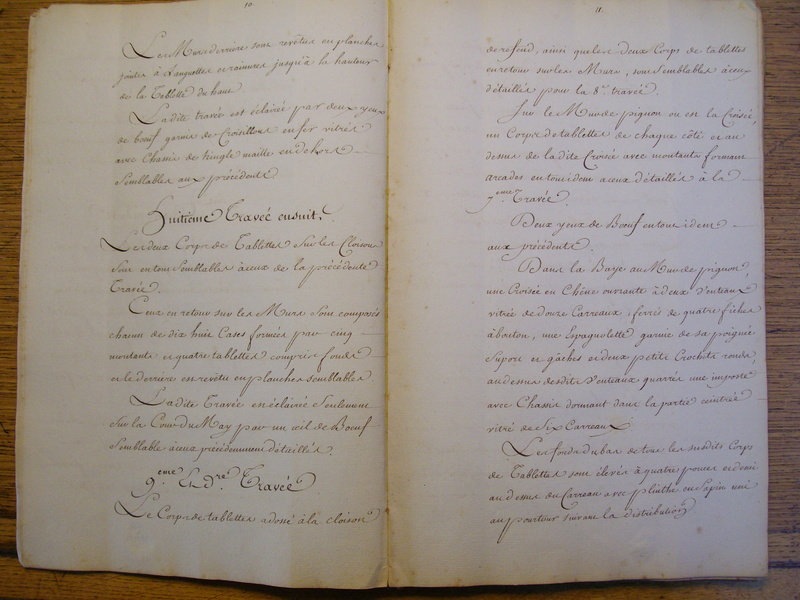 10.
Les Murs derriere sont revêtus en planches
jointes à Languettes et reinures jusqu'à la hauteur
de la Tablette du haut.
Ladite travée est éclairée par deux yeux
de bœuf garnis de Croisillons en fer vitrés
avec Chassis de tringle maillé en dehors
semblables aux précédents.
Huitieme Travée ensuit.
Les deux Corps de Tablettes sur les Cloisons
sont en tout semblables à ceux de la précédente
Travée.
Ceux en retour sur les Murs sont composés
chacun de dix huit Cases formées par cinq
montants et quatre tablettes compris fonds
et le derriere est revêtu en planches semblables.
Ladite Travée est éclairée seulement
sur la Cour du May par un œil de Bœuf
semblable à ceux précédemment détaillés.
9.eme Et d.re Travée
Le Corps de tablettes adossé à la cloison
11.
de refend, ainsi que les deux Corps de tablettes
en retour sur les Murs, sont semblables à ceux
détaillés pour la 8.e travée.
Sur le Mur de pignon ou est la Croisée,
un Corps de tablettes de chaque côté et au
dessus de ladite Croisée avec montants formant
arcades en tout idem à ceux détaillés à la
7.eme Travée.
Deux yeux de Bœuf en tout idem
aux précédents.
Dans la Baye au Mur de pignon,
une Croisée en Chêne ouvrante à deux Venteaux
vitrée de douze Carreaux, ferrés de quatre fiches
à bouton, une Espagnolette garnie de sa poignée
Suport et gâches et deux petits Crochets ronds,
au dessus desdits Venteaux quarrés une imposte
avec Chassis dormant dans la partie ceintrée
vitré de Six Carreaux.
Les fonds du bas de tous les susdits Corps
de Tablettes sont élevés à quatre pouces et demi
au dessus du Carreau avec plinthe en Sapin uni
au pourtour suivant la distribution